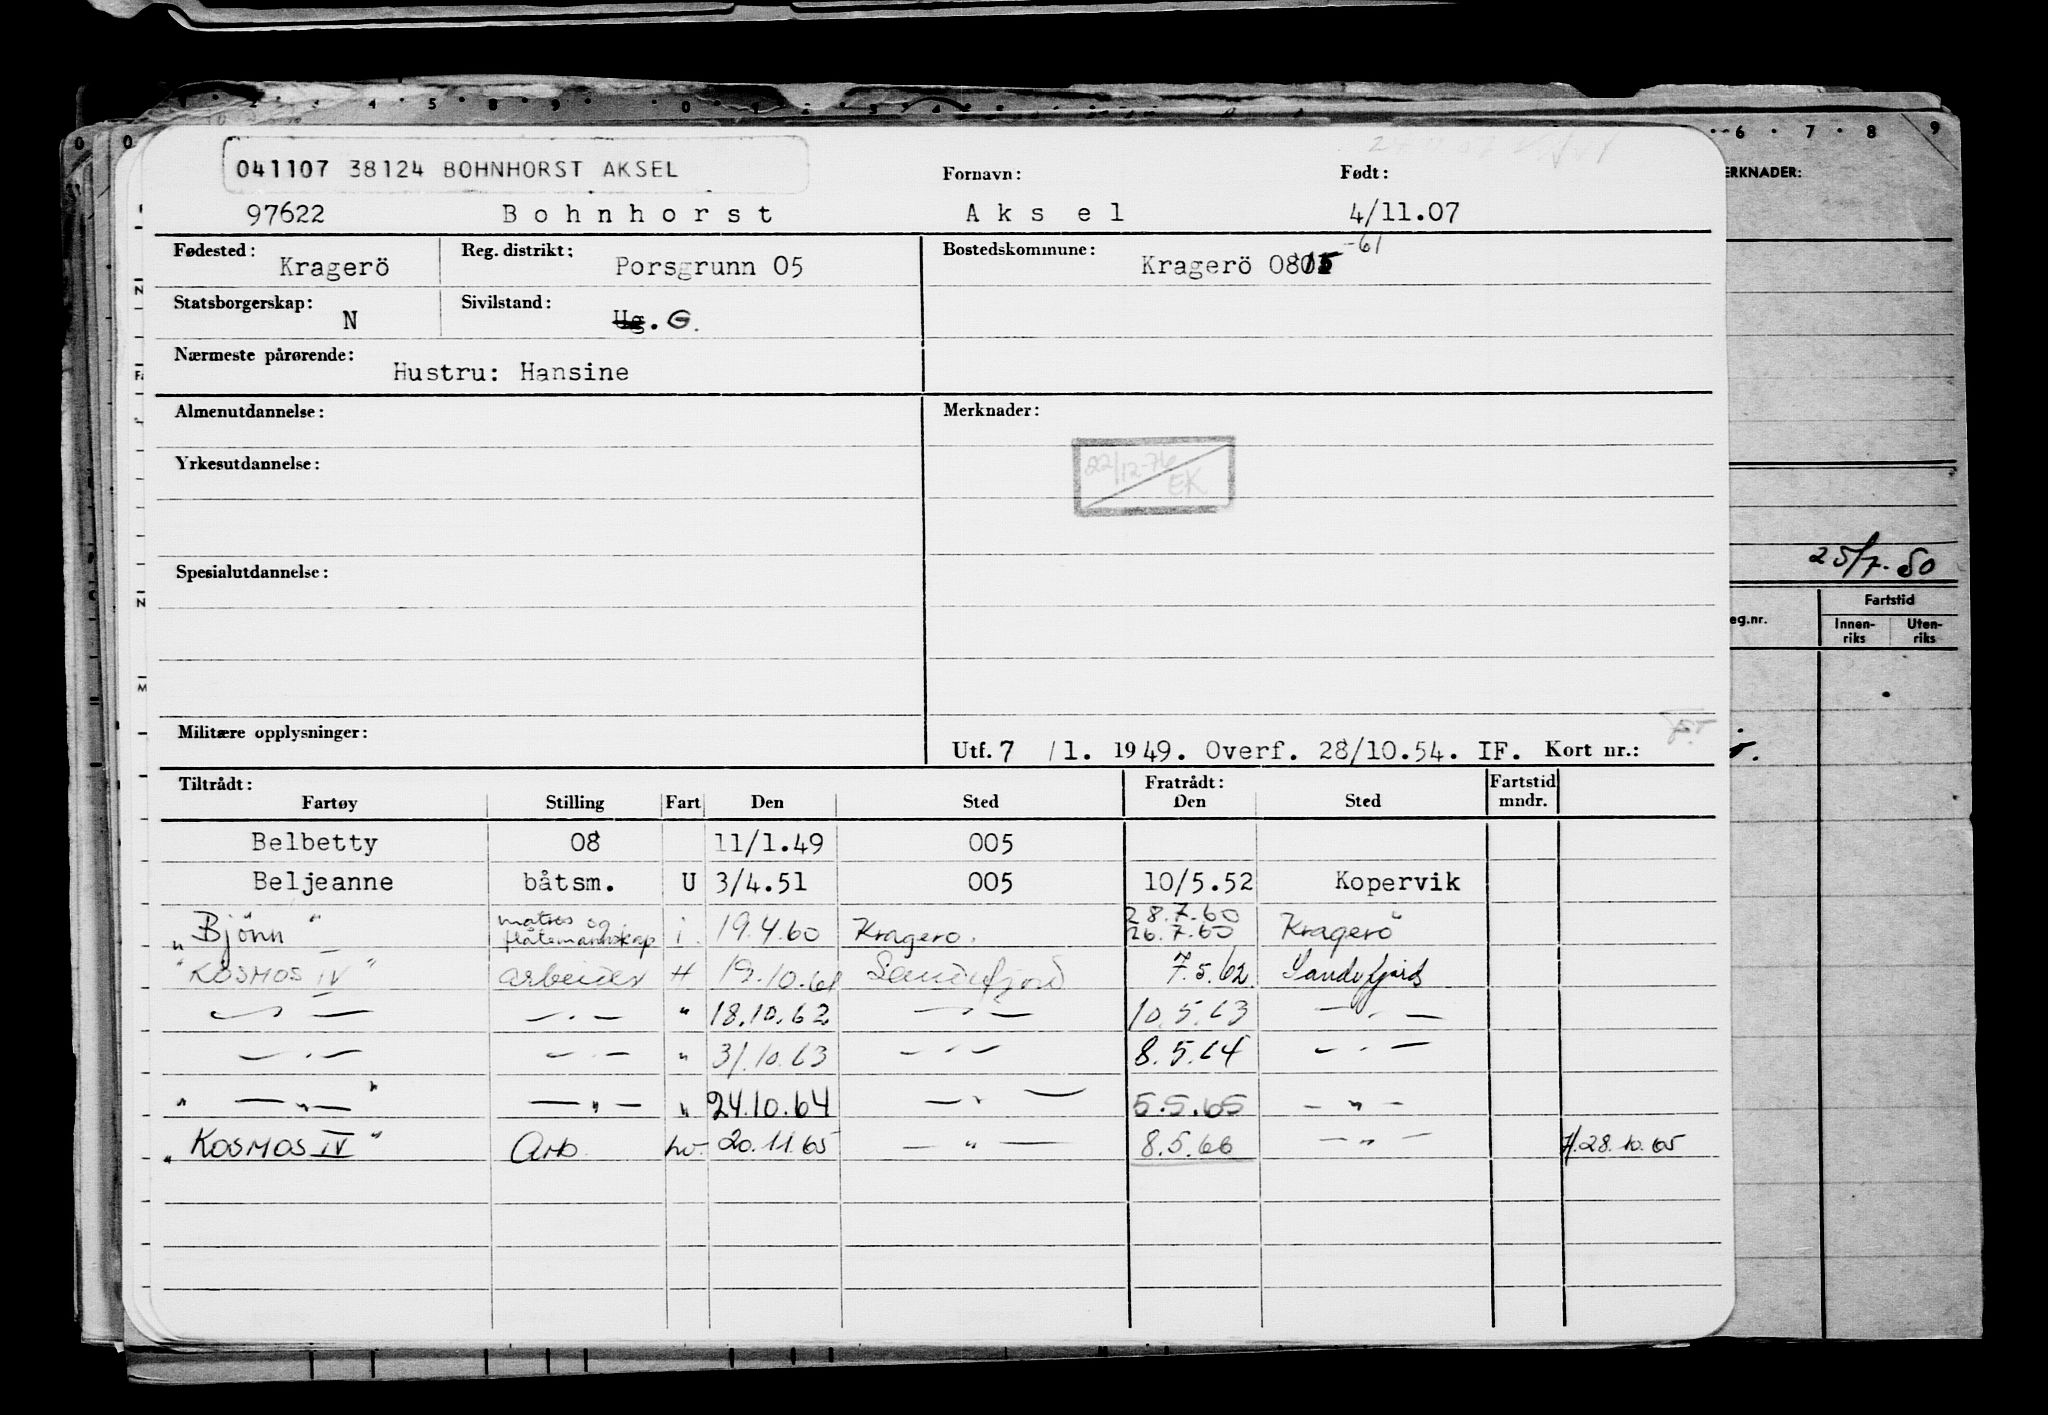 041107 38124 BOHNHORST AKSEL
Fornavn: Født:
97622 Bohnhorst Aksel 4/11.07
Fødested: Kragerö Reg. distrikt: Porsgrunn 05 Bostedskommune: Kragerö 0815 -61
Statsborgerskap: N Sivilstand: Ug. G.
Nærmeste pårørende: Hustru: Hansine
Almenutdannelse: Merknader:
Yrkesutdannelse: 22/12-76 EK
Spesialutdannelse:
Militære opplysninger: Utf. 7/1. 1949. Overf. 28/10.54. IF. Kort nr.:
Tiltrådt: Fratrådt: Fartstid
Fartøy Stilling Fart Den Sted Den Sted mndr.
Belbetty 08 11/1.49 005
Beljeanne båtsm. U 3/4.51 005 10/5.52 Kopervik
28.7.60
"Bjönn" matros og flåtemannskap i. 19.4.60 Kragerö. 26.7.60 Kragerö
"KOSMOS IV" arbeider H 19.10.61 Sandefjord 7.5.62 Sandefjord
— — — . — " 18.10.62 — — 10.5.63 — . —
— . — — . — " 31.10.63 — . — 8.5.64 — . —
" — " — " — " — " 24.10.64 — " — 5.5.65 — " —
"KOSMOS IV" Arb. hv. 20.11.65 — " — 8.5.66 — " — 28.10.65
ERKNADER:
25/7.50
eg.nr. Fartstid
Innen-riks Uten-riks
6 7 8 9